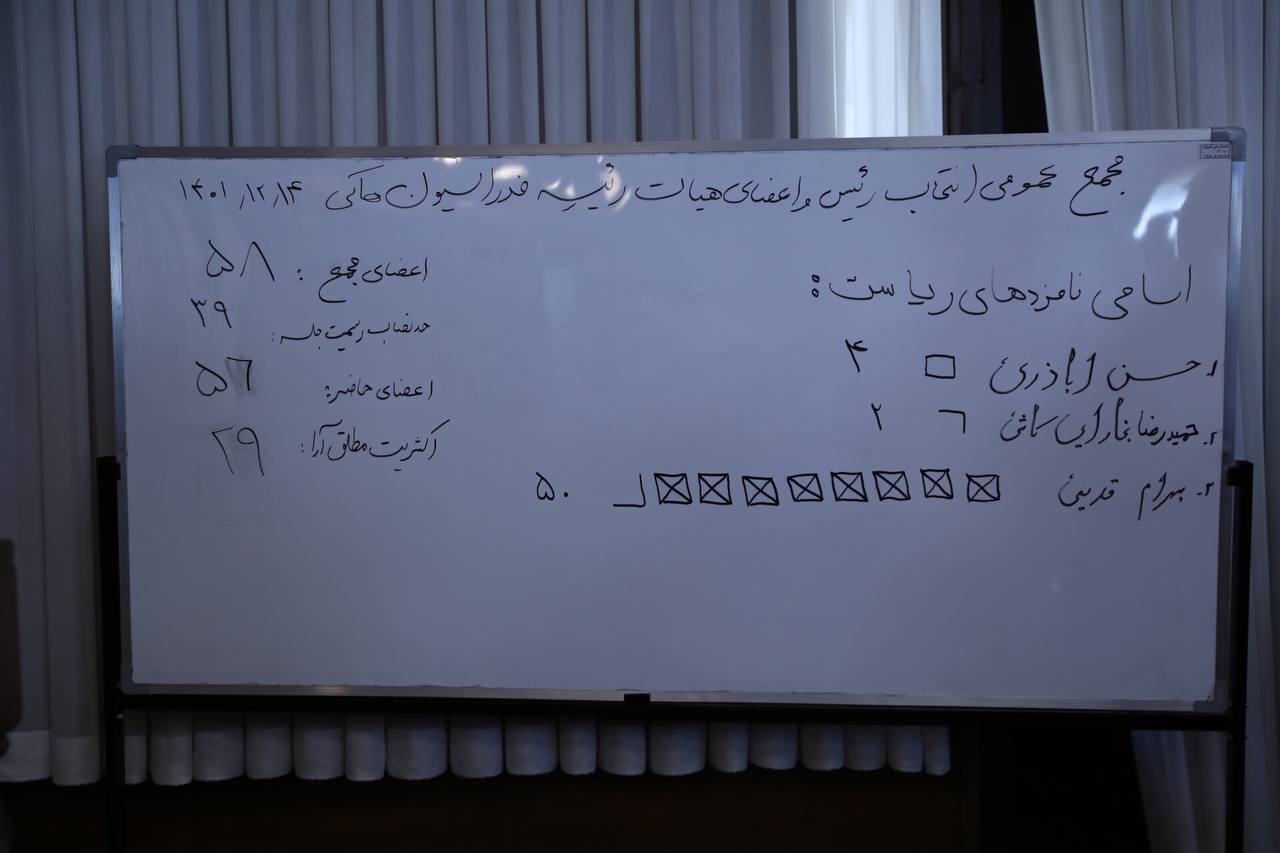 مجمع عمومی انتخاب رئیس و اعضای هیات رئیسه فدراسیون هاکی ۱۴۰۱/۱۲/۱۴
اسامی نامزدهای ریاست:
۱. حسن اباذری ۴
۲. حمیدرضا بخارایی کاشی ۲
۳. بهرام قدیمی ۵۰
اعضای مجمع: ۵۸
حد نصاب رسمیت جلسه: ۳۹
اعضای حاضر: ۵۶
اکثریت مطلق آرا: ۲۹